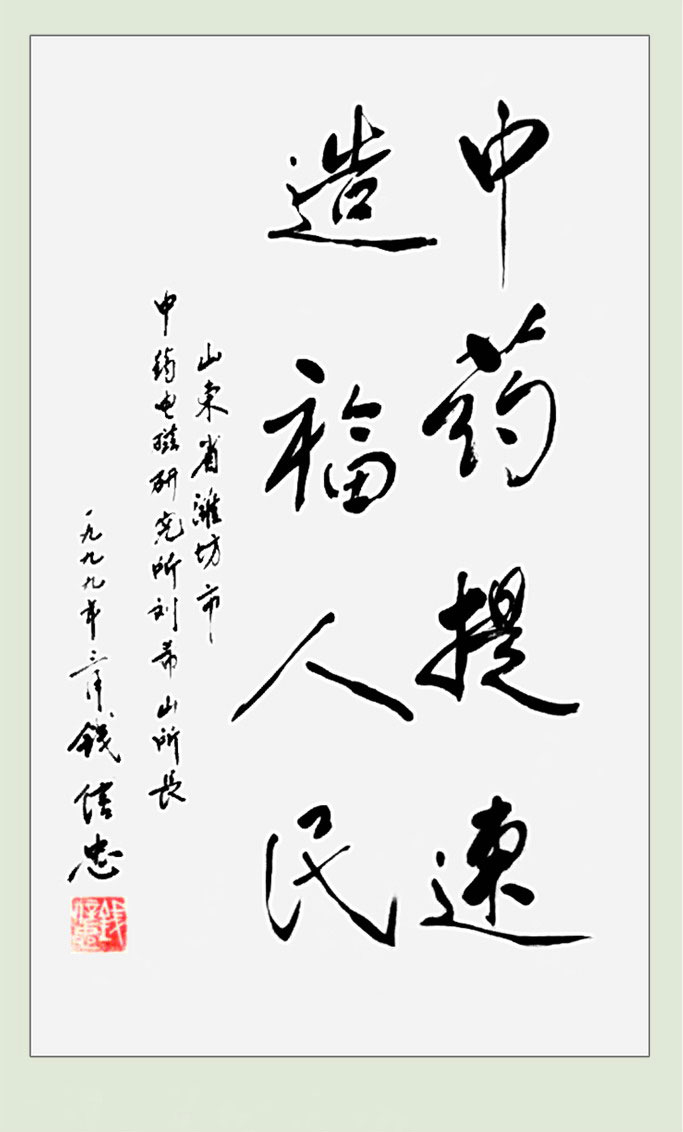 中药提速
造福人民
山东省潍坊市
中药电磁研究所刘希山所長
一九九九年三月
钱信忠
钱信忠